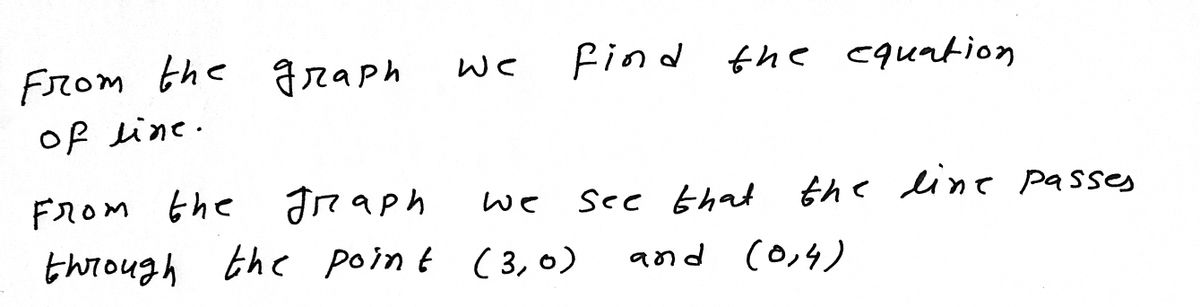 From the graph we find the equation
of line.
From the graph we see that the line passes
through the point (3,0) and (0,4)